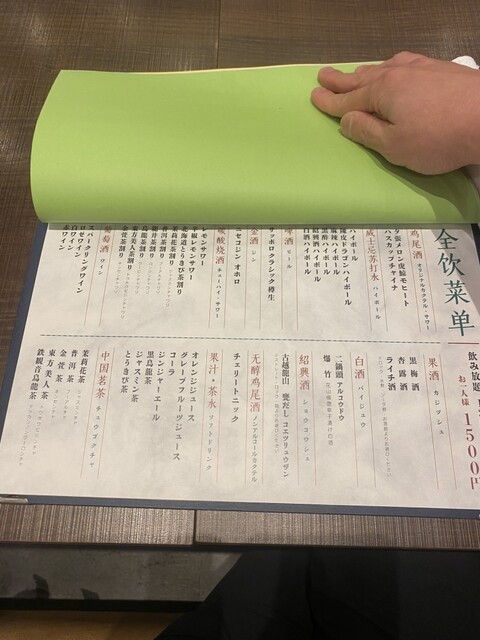 全饮菜单
飲み放題
お一人様 1500円
鸡尾酒 オリジナルカクテル・サワー
夕張メロン虎鯨モヒート
ハスカップチャイナ
威士忌苏打水 ハイボール
ハイボール
陳皮ドラゴンハイボール
麻辣ハイボール
紹興酒ハイボール
黒酢ハイボール
白酒ハイボール
啤酒 ビール
サッポロクラシック樽生
金酒 ジン
ニセコジン オホロ
碳酸烧酒 チューハイ・サワー
レモンサワー
山椒レモンサワー
北海道とうきび茶割り
茉莉花茶割り
普洱茶割り
烏龍茶割り
東方美人茶割り
金萱茶割り
葡萄酒 ワイン
スパークリングワイン
ロゼワイン
白ワイン
赤ワイン
果酒 カシツシュ
黒梅酒
杏露酒
ライチ酒
白酒 パイジュウ
二鍋頭 アルコウドウ
爆竹
绍興酒 ショウコウシュ
古越龍山 甕だし コエツリュウザン
无醇鸡尾酒 ノンアルコールカクテル
チェリートニック
果汁・茶水 ソフトドリンク
オレンジジュース
グレープフルーツジュース
コーラ
ジンジャーエール
黒烏龍茶
ジャスミン茶
とうきび茶
中国茗茶 チュウゴクチャ
茉莉花茶
普洱茶
金萱茶
東方美人茶
鉄観音烏龍茶